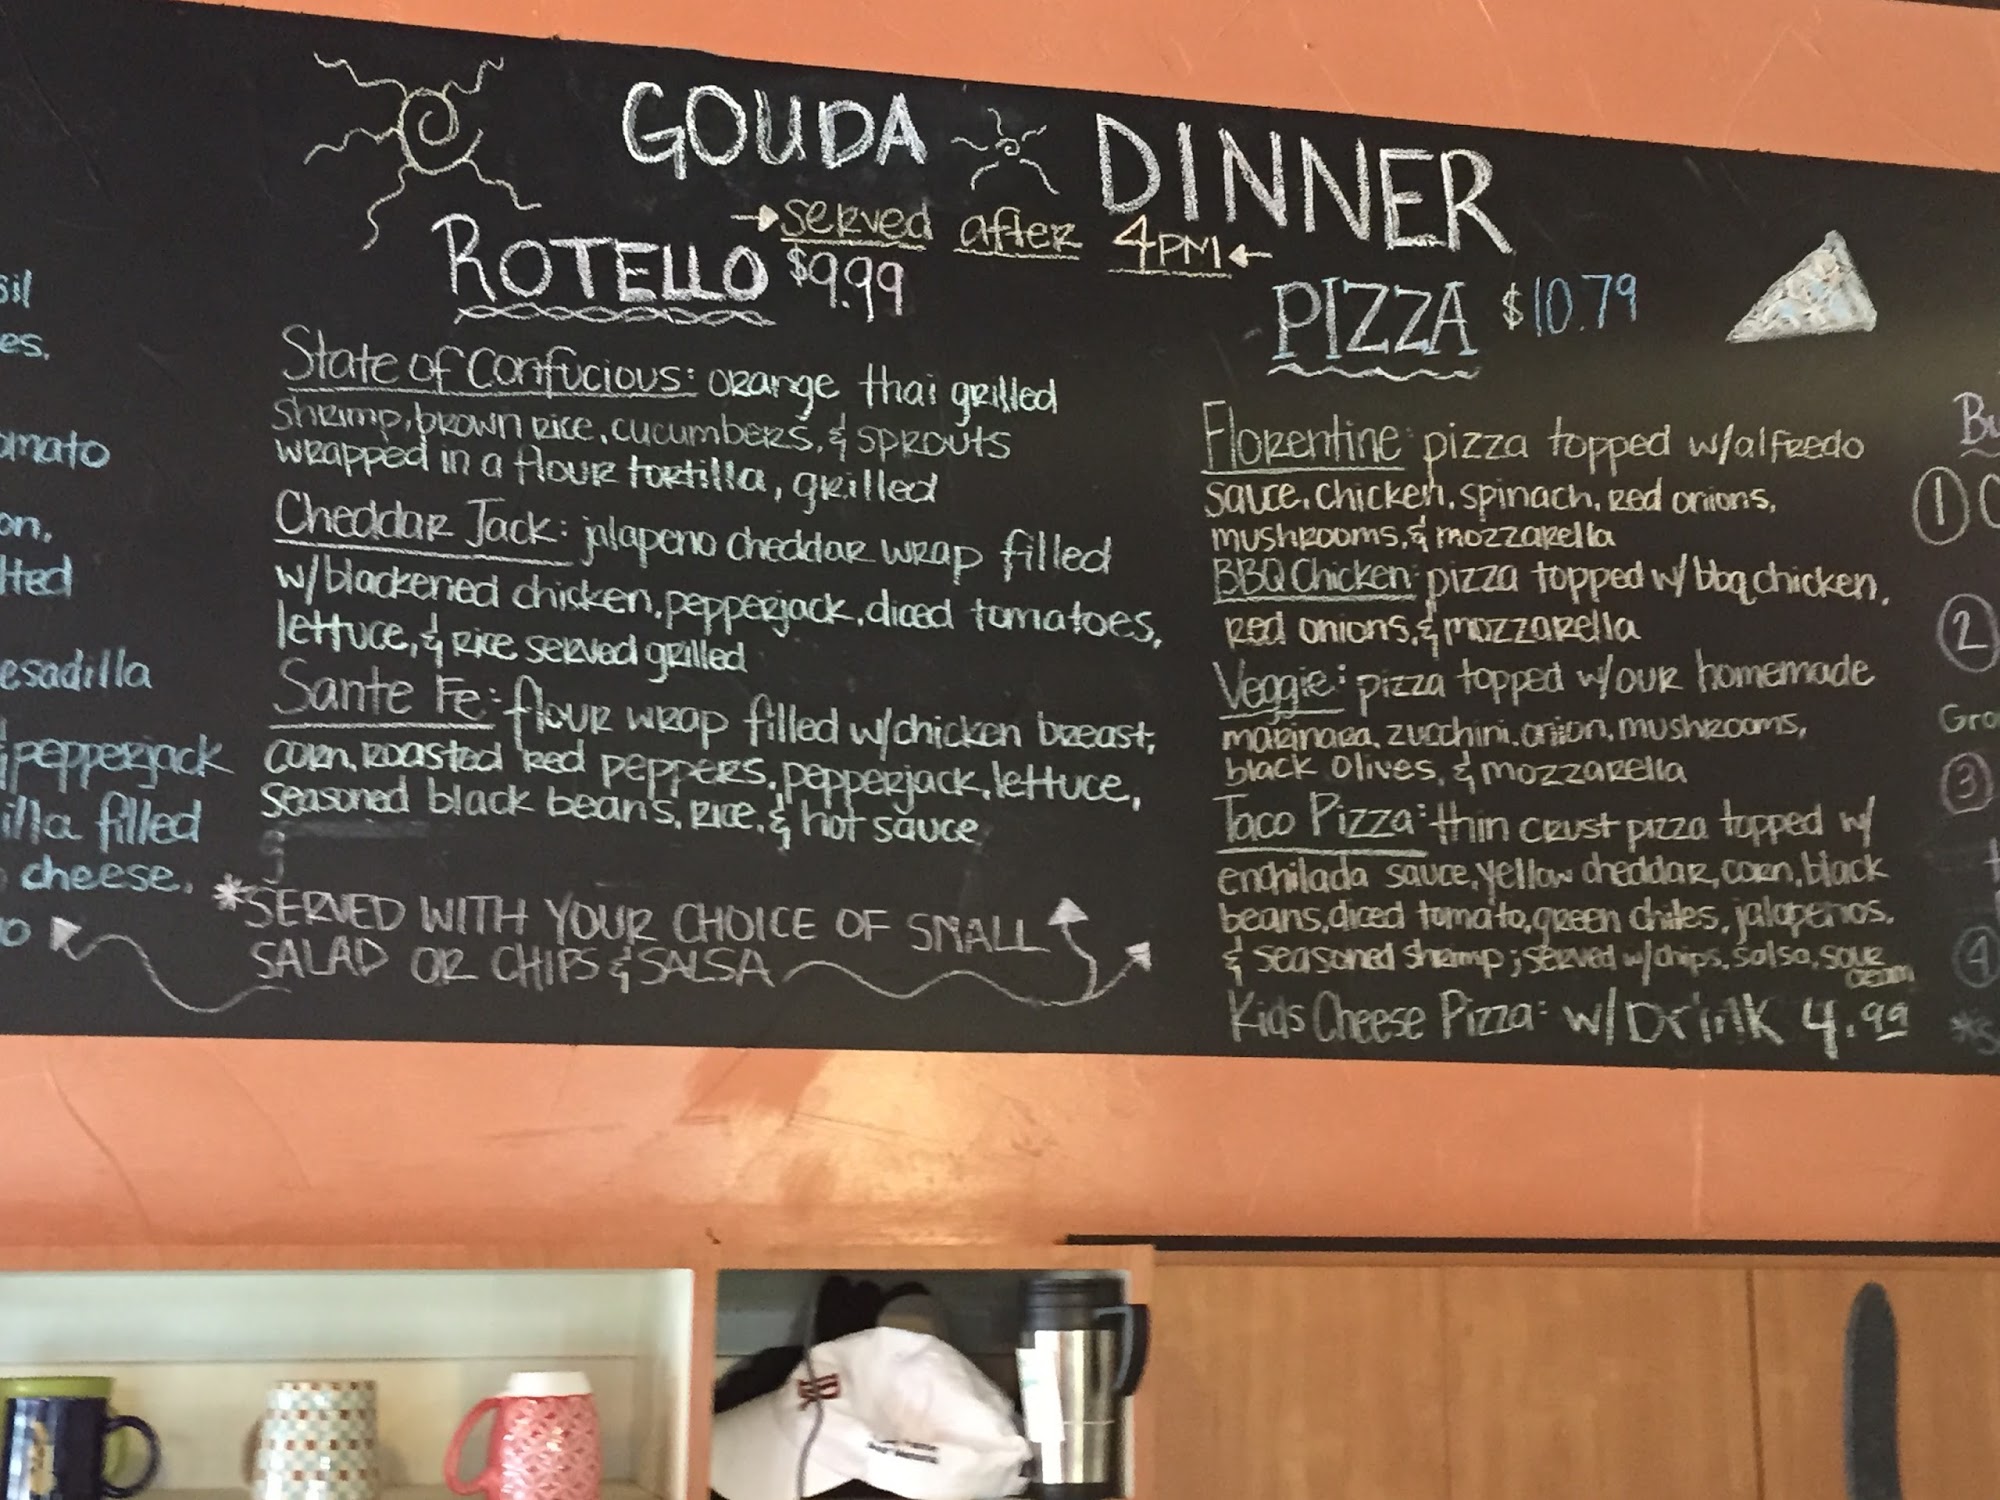 GOUDA DINNER
→served after 4PM←
ROTELLO $9.99
State of Confucious: orange thai grilled
shrimp, brown rice, cucumbers, & sprouts
wrapped in a flour tortilla, grilled
Cheddar Jack: jalapeno cheddar wrap filled
w/blackened chicken, pepperjack, diced tomatoes,
lettuce, & rice served grilled
Sante Fe: flour wrap filled w/chicken breast,
corn, roasted red peppers, pepperjack, lettuce,
seasoned black beans, rice, & hot sauce
*SERVED WITH YOUR CHOICE OF SMALL
SALAD OR CHIPS & SALSA
PIZZA $10.79
Florentine: pizza topped w/alfredo
sauce, chicken, spinach, red onions,
mushrooms, & mozzarella
BBQ Chicken: pizza topped w/ bbq chicken,
red onions, & mozzarella
Veggie: pizza topped w/our homemade
marinara, zucchini, onion, mushrooms,
black olives, & mozzarella
Taco Pizza: thin crust pizza topped w/
enchilada sauce, yellow cheddar, corn, black
beans, diced tomato, green chiles, jalapenos,
& seasoned shrimp; served w/chips, salsa, sour
cream
Kids Cheese Pizza: w/Drink 4.99
sil
es,
omato
on,
lted
esadilla
pepperjack
illa filled
cheese,
o
Bu
1
2
Gro
3
4